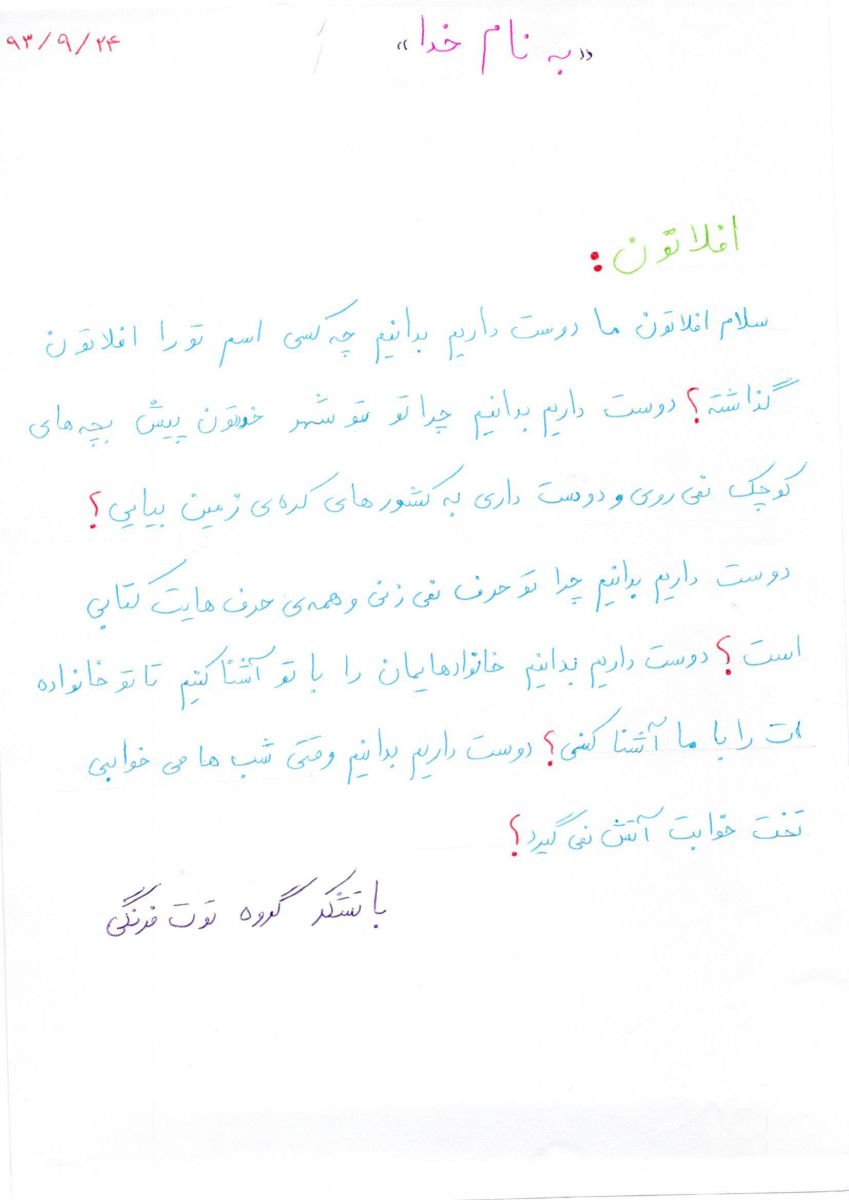 «به نام خدا» ۹۳/۹/۲۴
افلاتون:
سلام افلاتون ما دوست داریم بدانیم چه کسی اسم تو را افلاتون
گذاشته؟ دوست داریم بدانیم چرا تو تو شهر خودتون پیش بچه های
کوچک نمی روی و دوست داری به کشورهای کره ی زمین بیایی؟
دوست داریم بدانیم چرا تو حرف نمی زنی و همه ی حرف هایت کتابی
است؟ دوست داریم بدانیم خانوادهایمان را با تو آشنا کنیم تا تو خانواده
ات را با ما آشنا کنی؟ دوست داریم بدانیم وقتی شب ها می خوابی
تخت خوابت آتش نمی گیرد؟
با تشکر گروه توت فرنگی